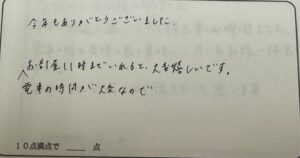 今年もありがとうございました。
お部屋11時までいれると、大変嬉しいです。
電車の時間が大変なので
10点満点で ____ 点